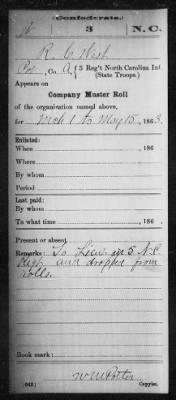 (Confederate.)
3 N.C.
R. C. West
Co. A, 3 Reg't North Carolina Inf
(State Troops.)
Appears on
Company Muster Roll
of the organization named above,
for Mch 1 to May 15, 1863.
Enlisted:
When , 186
Where
By whom
Period
Last paid:
By whom
To what time , 186
Present or absent
Remarks: To Lieut in 5 N.C.
and dropped from
rolls.
Book mark:
(642) Copyist.